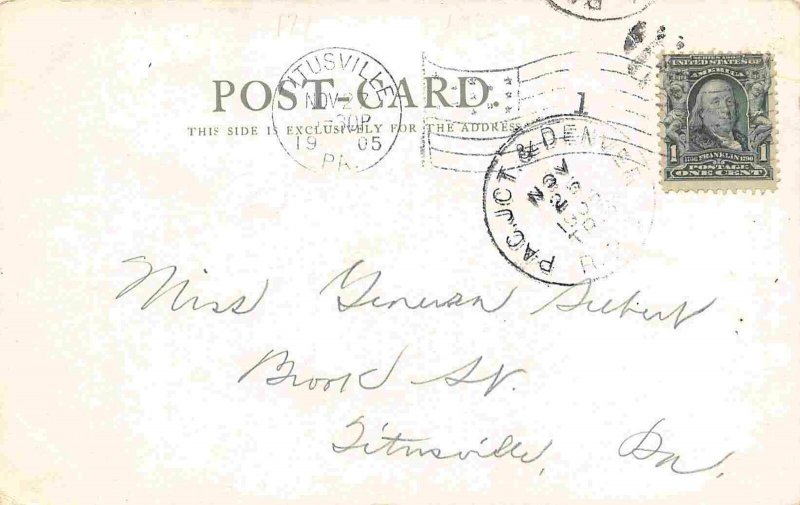 TITUSVILLE
NOV 2
1-30P
19 05
PA.
POST-CARD.
THIS SIDE IS EXCLUSIVELY FOR THE ADDRESS
1
PAC. JCT & DENVER
NOV
R.P.O.
SERIES 1902
UNITED STATES OF
AMERICA
1 FRANKLIN 1
POSTAGE
ONE CENT
Miss Seibert
Brook St.
Titusville, Pa.